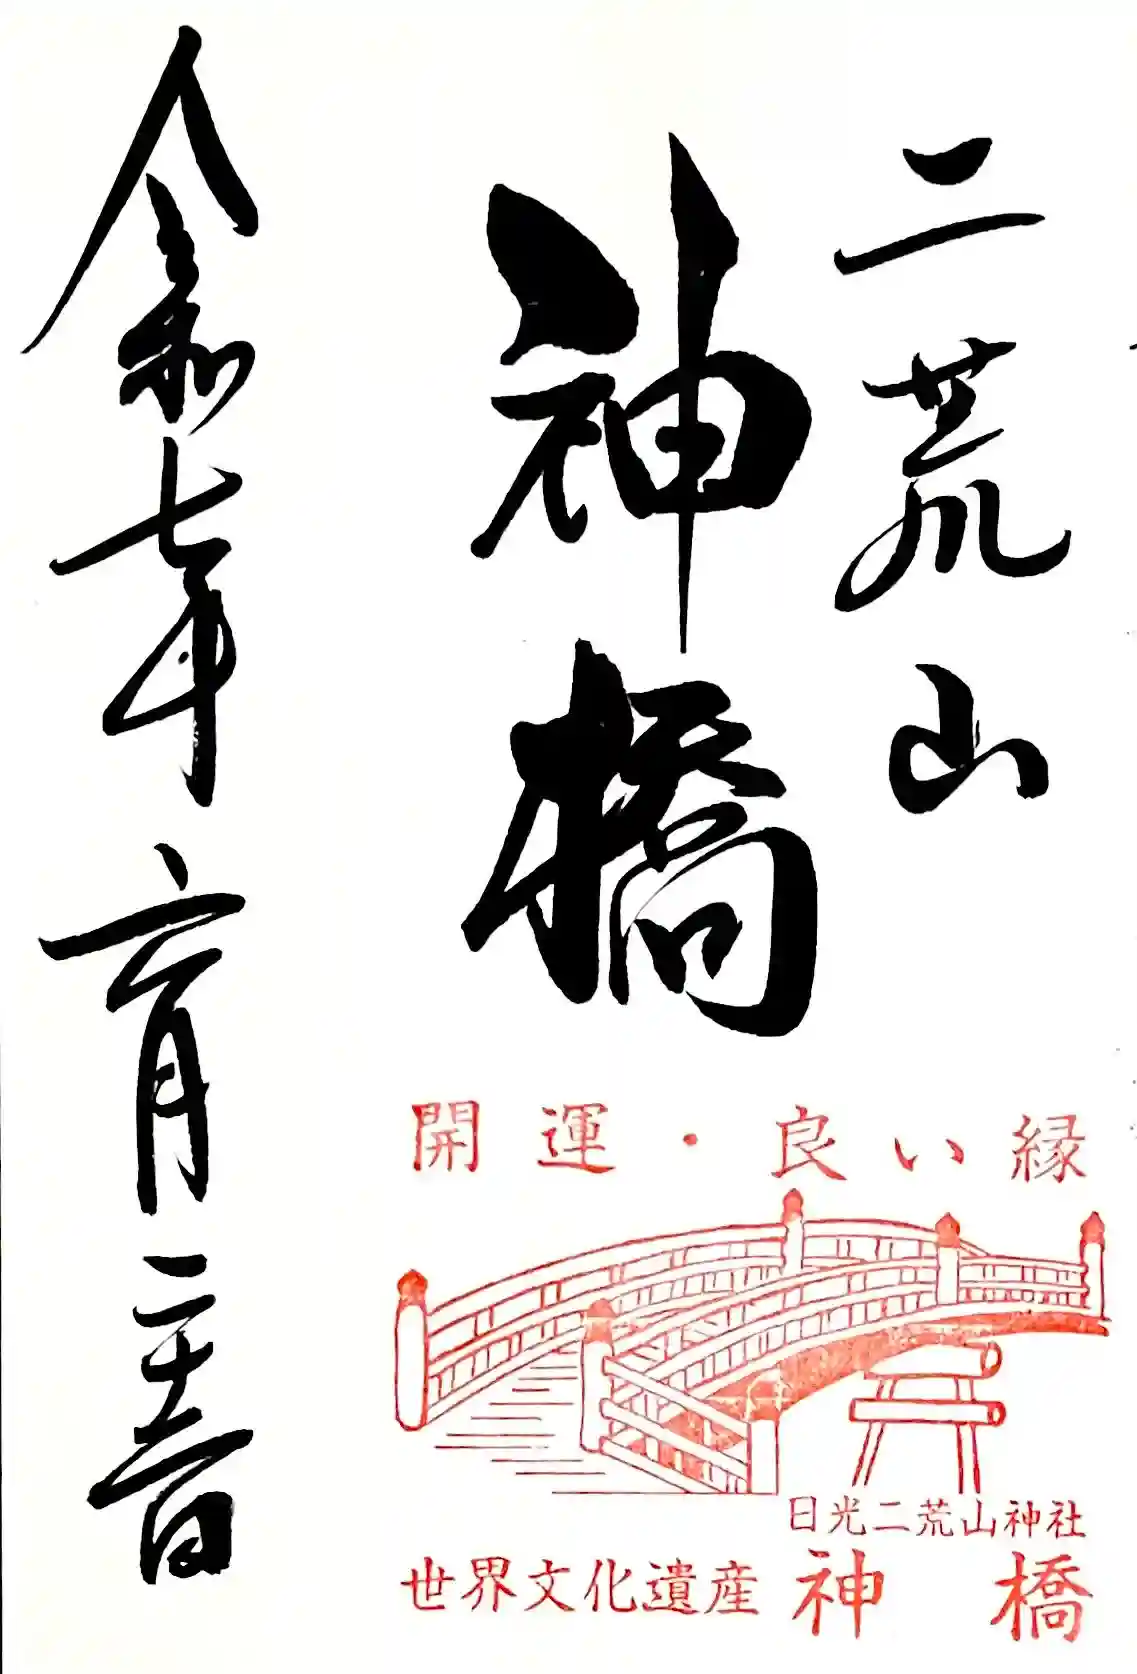 二荒山
神橋
令和七年六月二十五日
開運・良い縁
日光二荒山神社
世界文化遺産 神橋